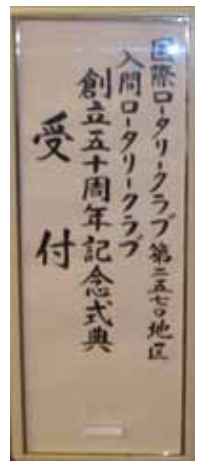 国際ロータリークラブ第二五七〇地区
入間ロータリークラブ
創立五十周年記念式典
受付